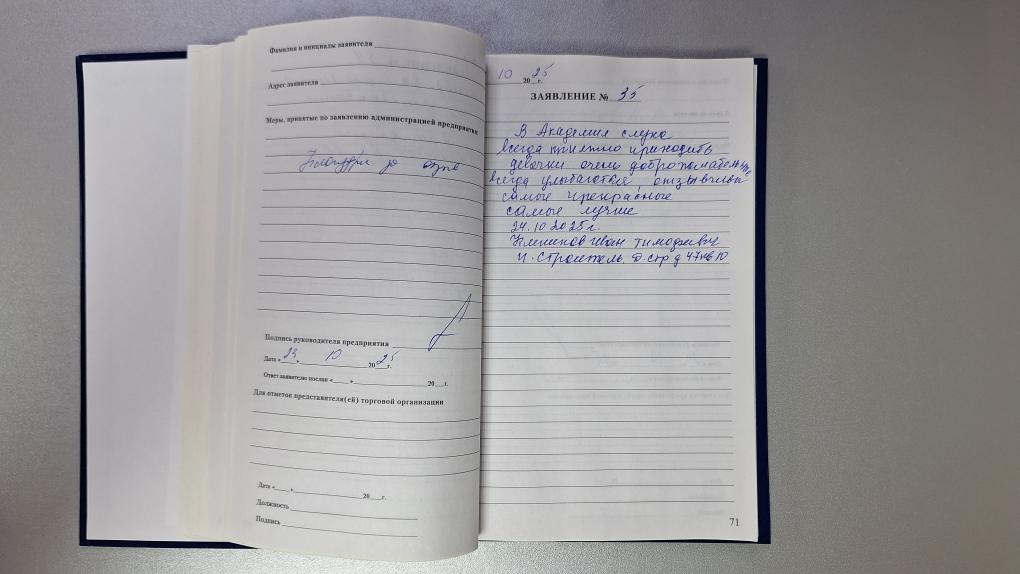 Фамилия и инициалы заявителя
Адрес заявителя
Меры, принятые по заявлению администрацией предприятия
до
Подпись руководителя предприятия
Дата « 23 » 10 20 25 г.
Ответ заявителю послан « » 20 г.
Для отметок представителя(ей) торговой организации
Дата « » 20 г.
Должность
Подпись
10 20 25 г.
ЗАЯВЛЕНИЕ № 35
В Академия слуха
всегда приятно приходить
девочки очень доброжелательные
всегда улыбаются, отзывчивы
самые прекрасные
самые лучше
24.10 2025г.
Иван Тимофевич
п. Строитель. д 47 кв 10
71